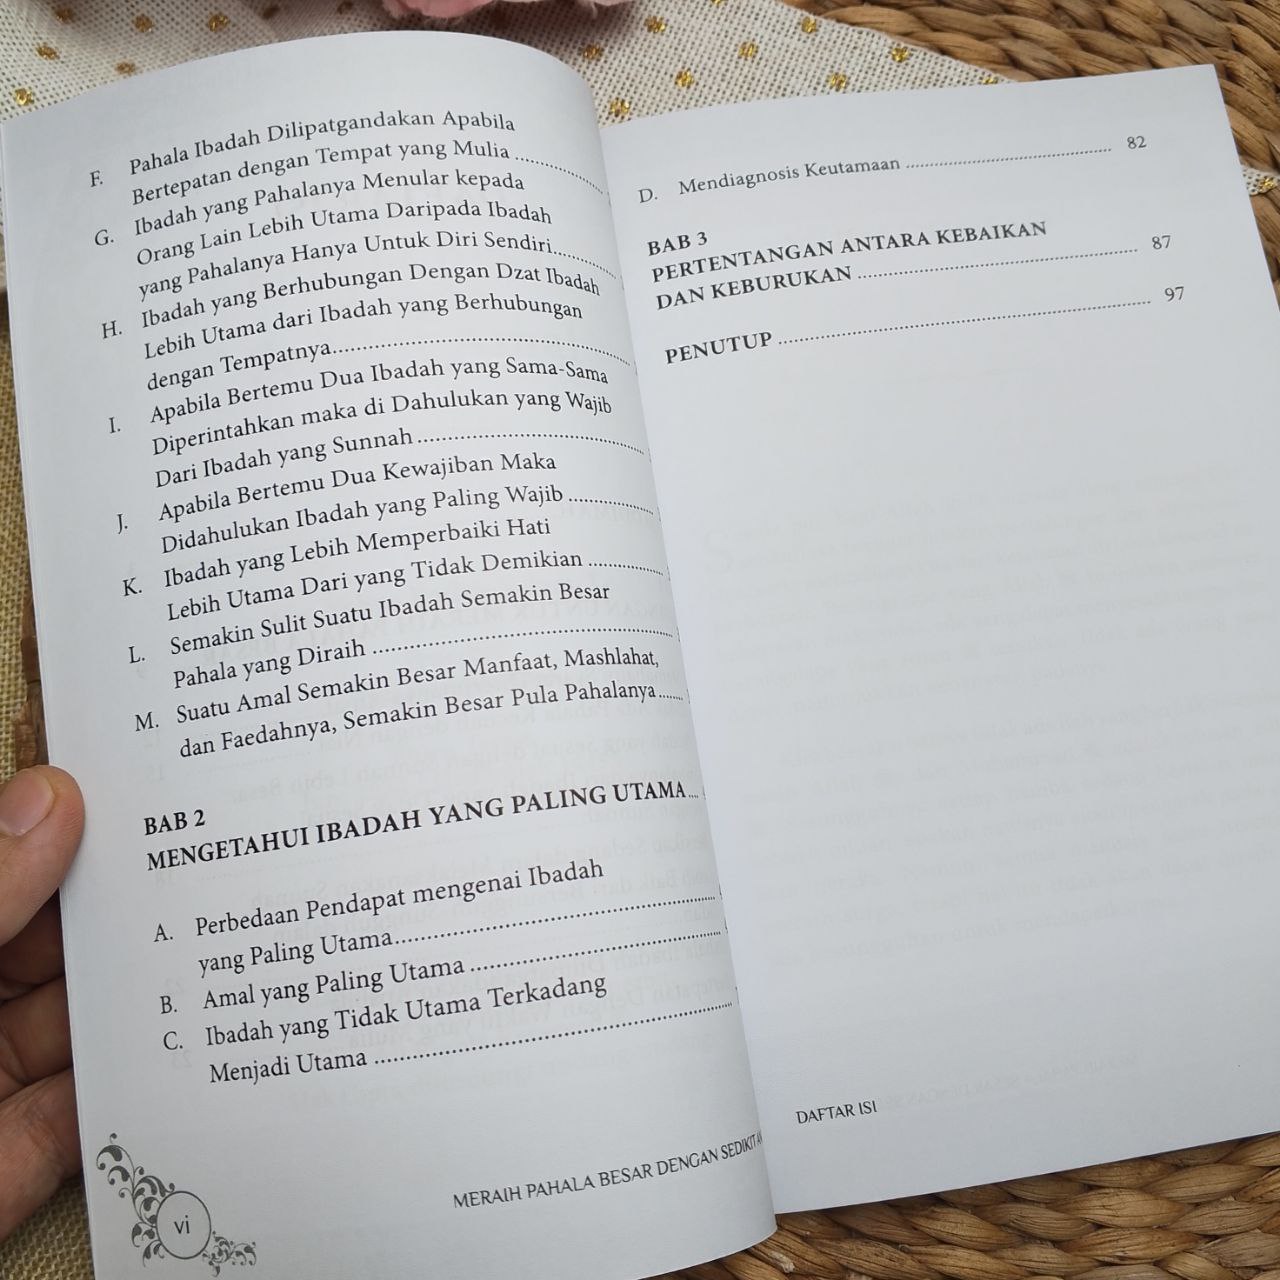 F. Pahala Ibadah Dilipatgandakan Apabila
Bertepatan dengan Tempat yang Mulia
G. Ibadah yang Pahalanya Menular kepada
Orang Lain Lebih Utama Daripada Ibadah
yang Pahalanya Hanya Untuk Diri Sendiri
H. Ibadah yang Berhubungan Dengan Dzat Ibadah
Lebih Utama dari Ibadah yang Berhubungan
dengan Tempatnya
I. Apabila Bertemu Dua Ibadah yang Sama-Sama
Diperintahkan maka di Dahulukan yang Wajib
Dari Ibadah yang Sunnah
J. Apabila Bertemu Dua Kewajiban Maka
Didahulukan Ibadah yang Paling Wajib
K. Ibadah yang Lebih Memperbaiki Hati
Lebih Utama Dari yang Tidak Demikian
L. Semakin Sulit Suatu Ibadah Semakin Besar
Pahala yang Diraih
M. Suatu Amal Semakin Besar Manfaat, Mashlahat,
dan Faedahnya, Semakin Besar Pula Pahalanya
BAB 2
MENGETAHUI IBADAH YANG PALING UTAMA
A. Perbedaan Pendapat mengenai Ibadah
yang Paling Utama
B. Amal yang Paling Utama
C. Ibadah yang Tidak Utama Terkadang
Menjadi Utama
vi
MERAIH PAHALA BESAR DENGAN SEDIKIT
D. Mendiagnosis Keutamaan 82
BAB 3
PERTENTANGAN ANTARA KEBAIKAN
DAN KEBURUKAN 87
PENUTUP 97
DAFTAR ISI